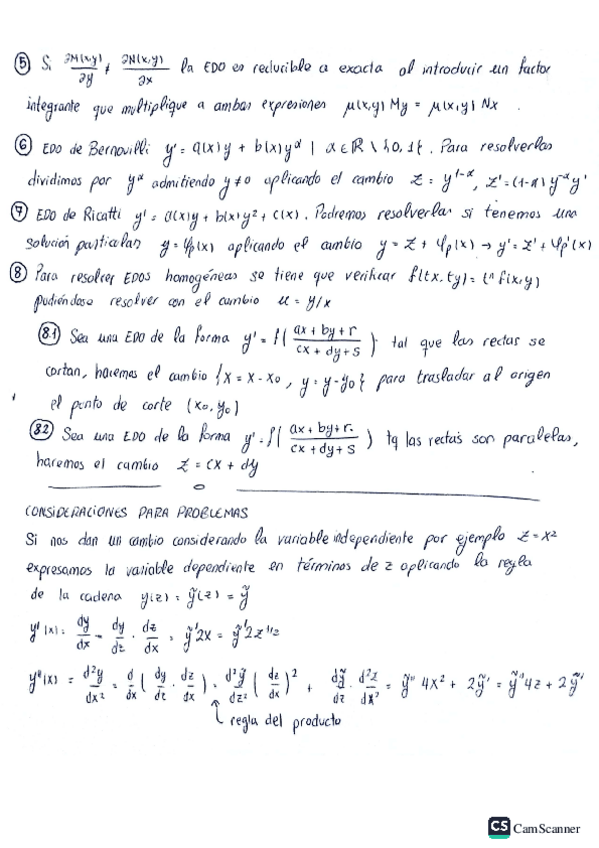 ⑤ Si ∂M(x,y)/∂y ≠ ∂N(x,y)/∂x la EDO es reducible a exacta al introducir un factor
integrante que multiplique a ambas expresiones μ(x,y) My = μ(x,y) Nx .
⑥ EDO de Bernouilli y' = a(x)y + b(x)y^α | α ∈ ℝ \ {0,1}. Para resolverlas
dividimos por y^α admitiendo y≠0 aplicando el cambio z = y^(1-α), z' = (1-α)y^(-α)y'
⑦ EDO de Ricatti y' = a(x)y + b(x)y² + c(x). Podremos resolverlas si tenemos una
solución particular y = φp(x) aplicando el cambio y = z + φp(x) → y' = z' + φp'(x)
⑧ Para resolver EDOs homogéneas se tiene que verificar f(tx,ty) = t^n f(x,y)
pudiéndose resolver con el cambio u = y/x
8.1 Sea una EDO de la forma y' = f( (ax + by + r)/(cx + dy + s) ) tal que las rectas se
cortan, haremos el cambio {X = x - x₀, y = y - y₀} para trasladar al origen
el punto de corte (x₀, y₀)
8.2 Sea una EDO de la forma y' = f( (ax + by + r)/(cx + dy + s) ) tq las rectas son paralelas,
haremos el cambio z = cx + dy
CONSIDERACIONES PARA PROBLEMAS
Si nos dan un cambio considerando la variable independiente por ejemplo z = x²
expresamos la variable dependiente en términos de z aplicando la regla
de la cadena y(z) = ỹ(z) = ỹ
y'(x) = dy/dx = dy/dz · dz/dx = ỹ'2x = ỹ'2z^(1/2)
y''(x) = d²y/dx² = d/dx ( dy/dz · dz/dx ) = d²ỹ/dz² ( dz/dx )² + dỹ/dz · d²z/dx² = ỹ'' 4x² + 2ỹ' = ỹ''4z + 2ỹ'
regla del producto
CS CamScanner